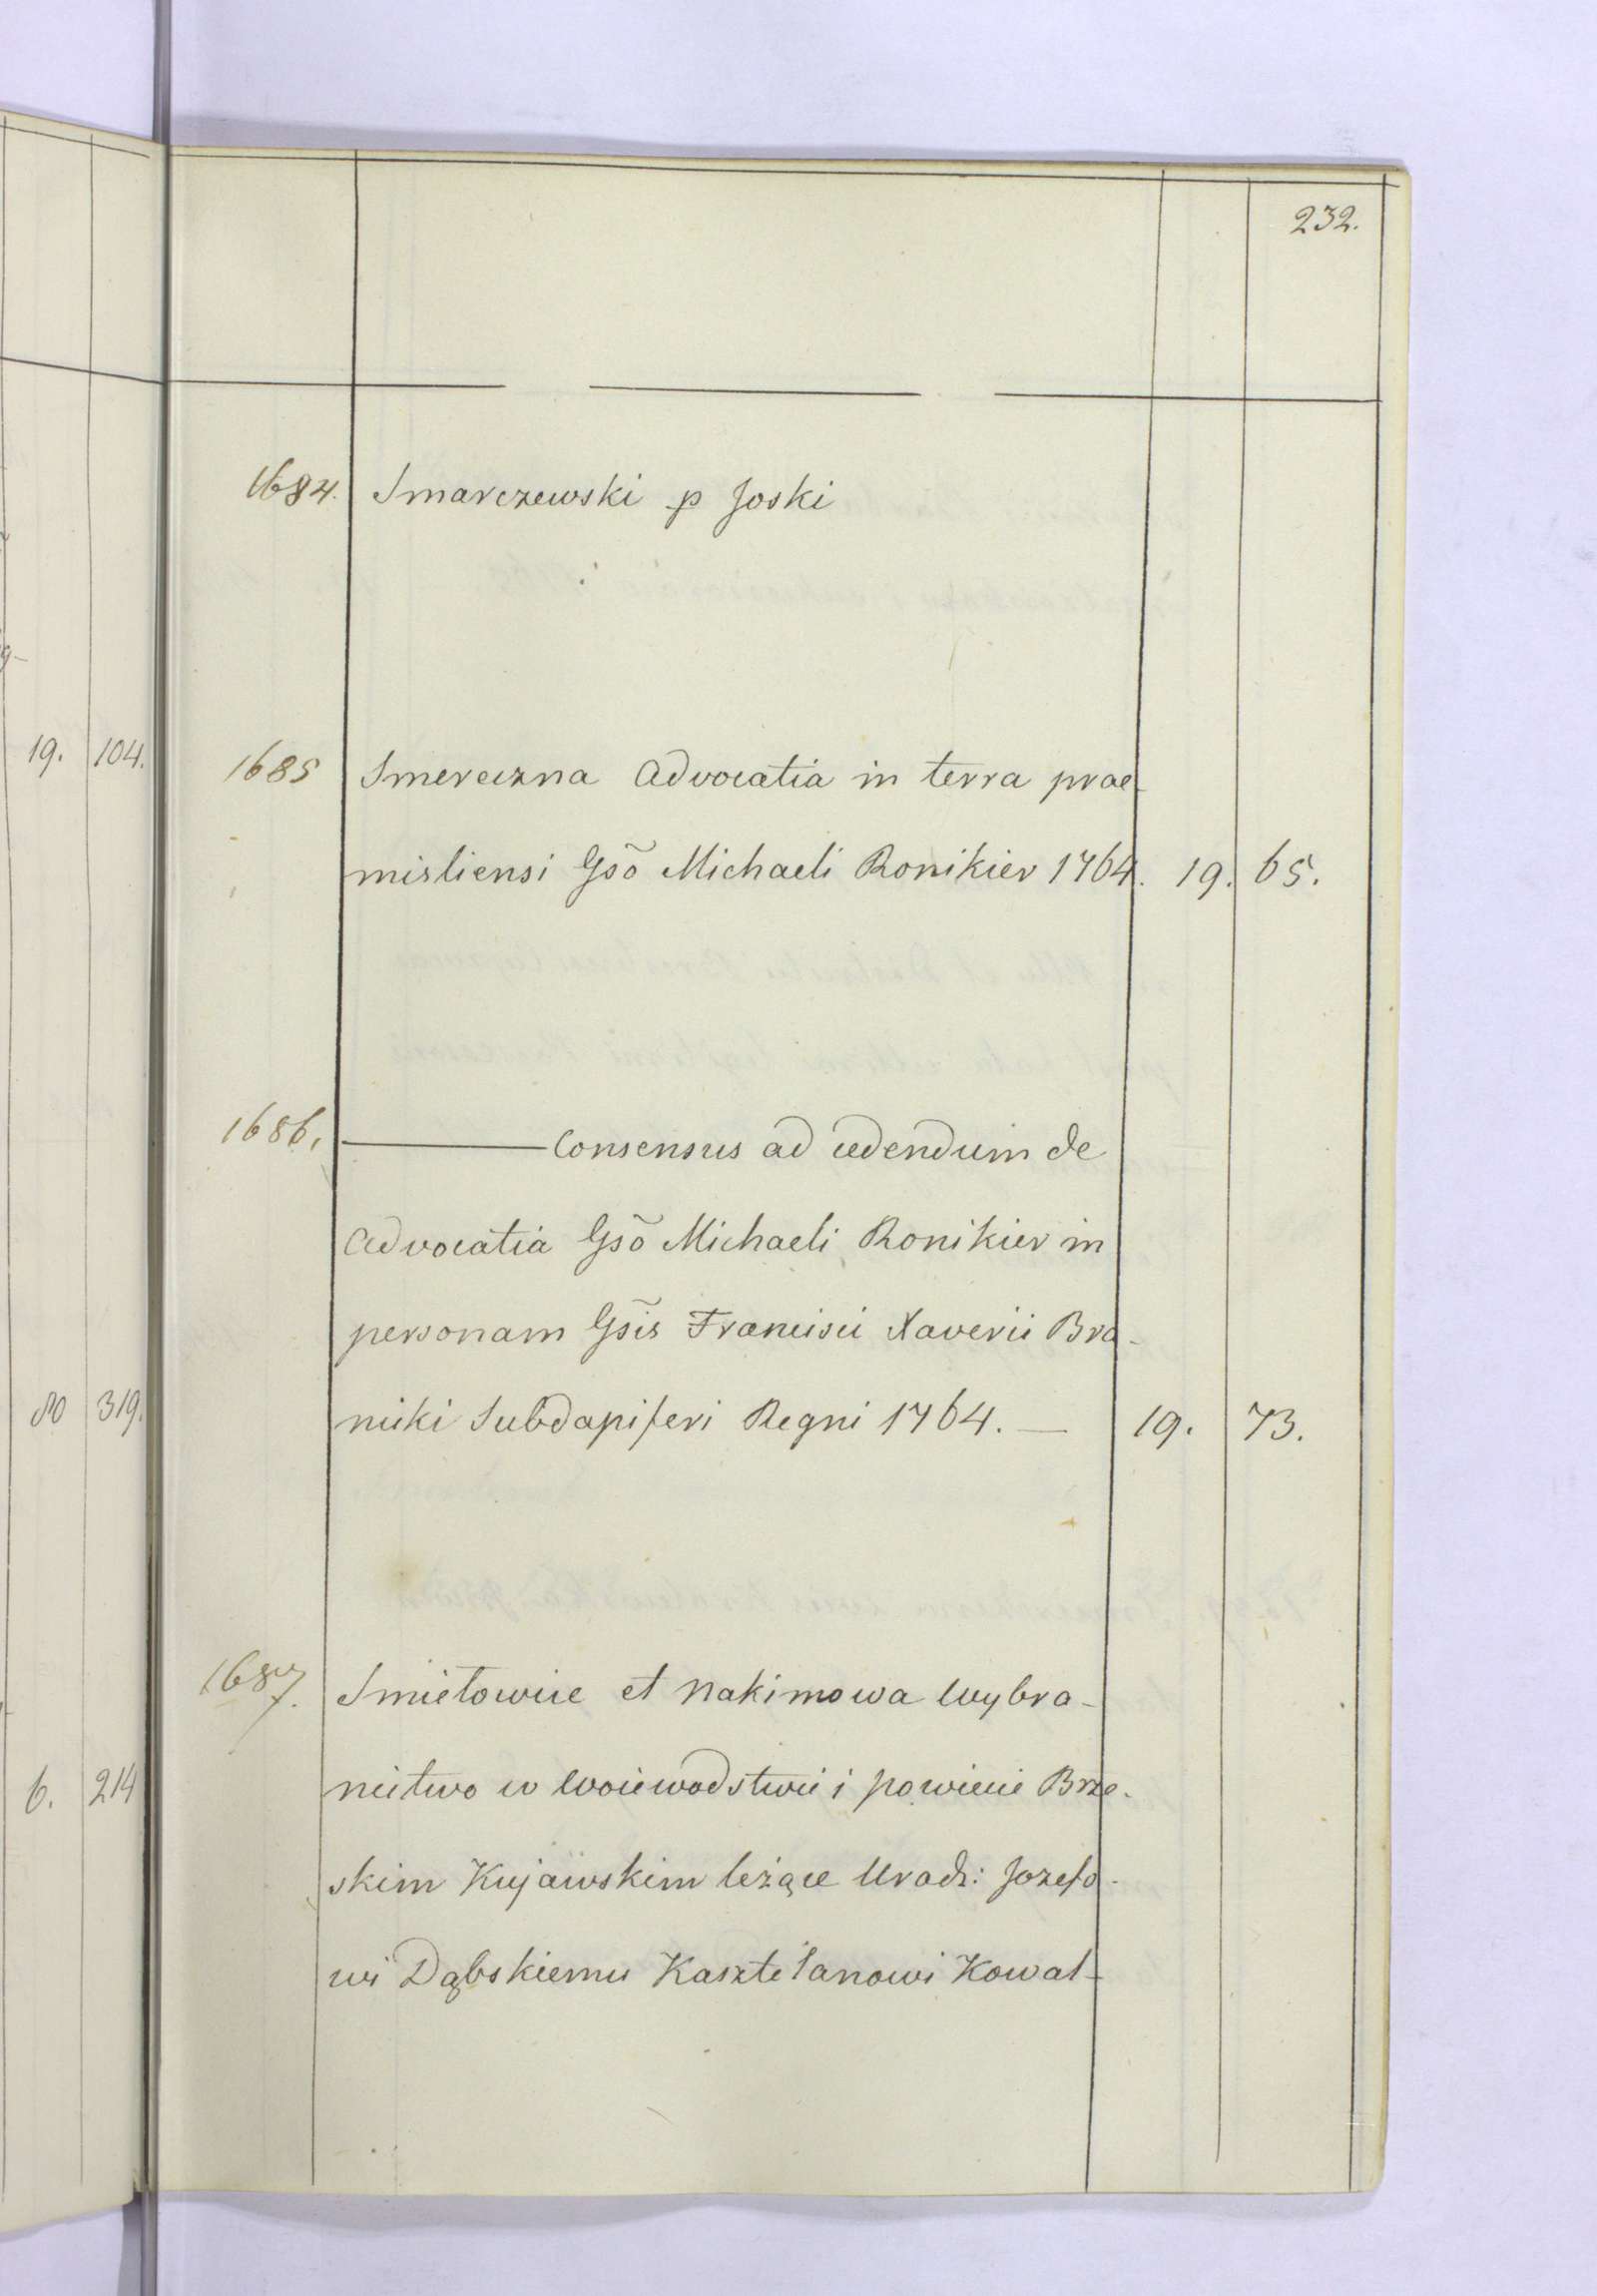 232.
1684. Smarczewski p Joski
19. 104.
1685 Smereczna Advocatia in terra prae-
misliensi Gsõ Michaeli Ronikier 1764. 19. 65.
1686. ——— Consensus ad cedendum de
Advocatia Gsõ Michaeli Ronikier in
personam Gsĩs Francisci Xaverii Bra-
nicki Subdapiferi Regni 1764. — 19. 73.
80 319.
1687. Smiełowice et Nakimowa Wybra-
nictwo w Woiewodstwie i powiecie Brze-
6. 214
skim Kujawskim leżące Urodz: Jozefo-
wi Dąbskiemu Kasztelanowi Kowal-